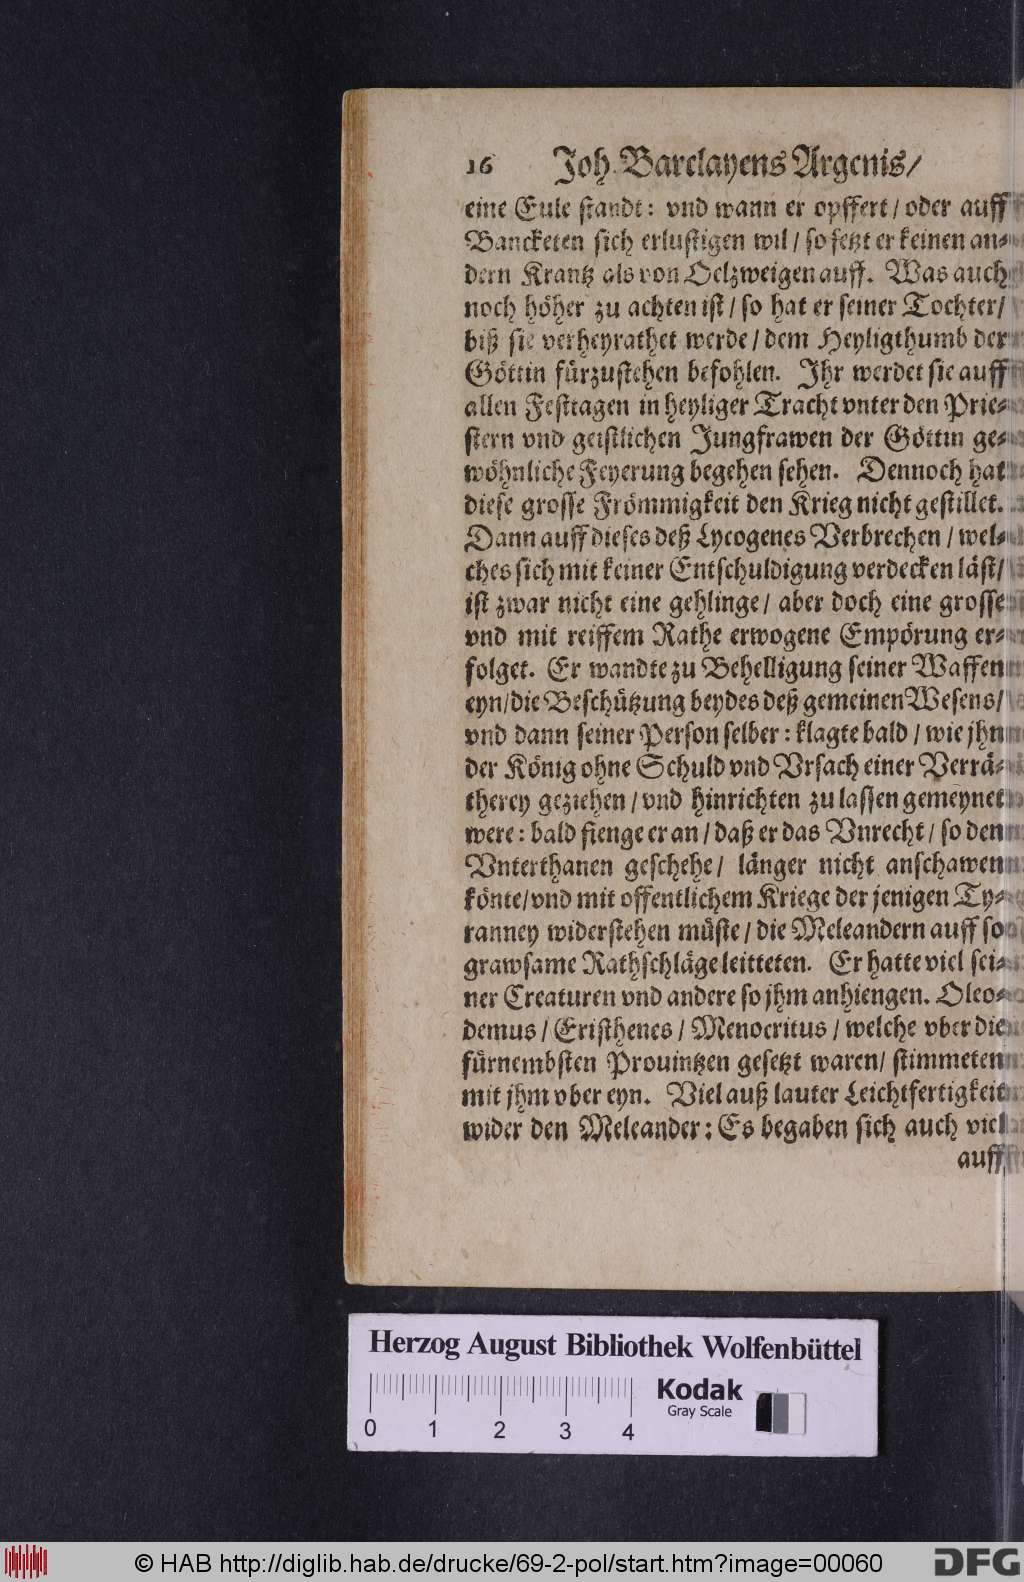 16 Joh. Barclayens Argenis/
eine Eule standt: vnd wann er opffert/ oder auff
Bancketen sich erlustigen wil/ so setzt er keinen an-
dern Krantz als von Oelzweigen auff. Was auch
noch höher zu achten ist/ so hat er seiner Tochter/
biß sie verheyrathet werde/ dem Heyligthumb der
Göttin fürzustehen befohlen. Ihr werdet sie auff
allen Festtagen in heyliger Tracht vnter den Prie-
stern vnd geistlichen Jungfrawen der Göttin ge-
wöhnliche Feyerung begehen sehen. Dennoch hat
diese grosse Frömmigkeit den Krieg nicht gestillet.
Dann auff dieses deß Lycogenes Verbrechen/ wel-
ches sich mit keiner Entschuldigung verdecken läst/
ist zwar nicht eine gehlinge/ aber doch eine grosse
vnd mit reiffem Rathe erwogene Empörung er-
folget. Er wandte zu Behelligung seiner Waffen
eyn/ die Beschützung beydes deß gemeinen Wesens/
vnd dann seiner Person selber: klagte bald/ wie jhn
der König ohne Schuld vnd Vrsach einer Verrä-
therey geziehen/ vnd hinrichten zu lassen gemeynet
were: bald fienge er an/ daß er das Vnrecht/ so den
Vnterthanen geschehe/ länger nicht anschawen
könte/ vnd mit offentlichem Kriege der jenigen Ty-
ranney widerstehen müste/ die Meleandern auff so
grawsame Rathschläge leitteten. Er hatte viel sei-
ner Creaturen vnd andere so jhm anhiengen. Oleo-
demus/ Eristhenes/ Menocritus/ welche vber die
fürnembsten Prouintzen gesetzt waren/ stimmeten
mit jhm vber eyn. Viel auß lauter Leichtfertigkeit
wider den Meleander: Es begaben sich auch viel
auff
Herzog August Bibliothek Wolfenbüttel
0 1 2 3 4
Kodak
Gray Scale
© HAB http://diglib.hab.de/drucke/69-2-pol/start.htm?image=00060
DFG